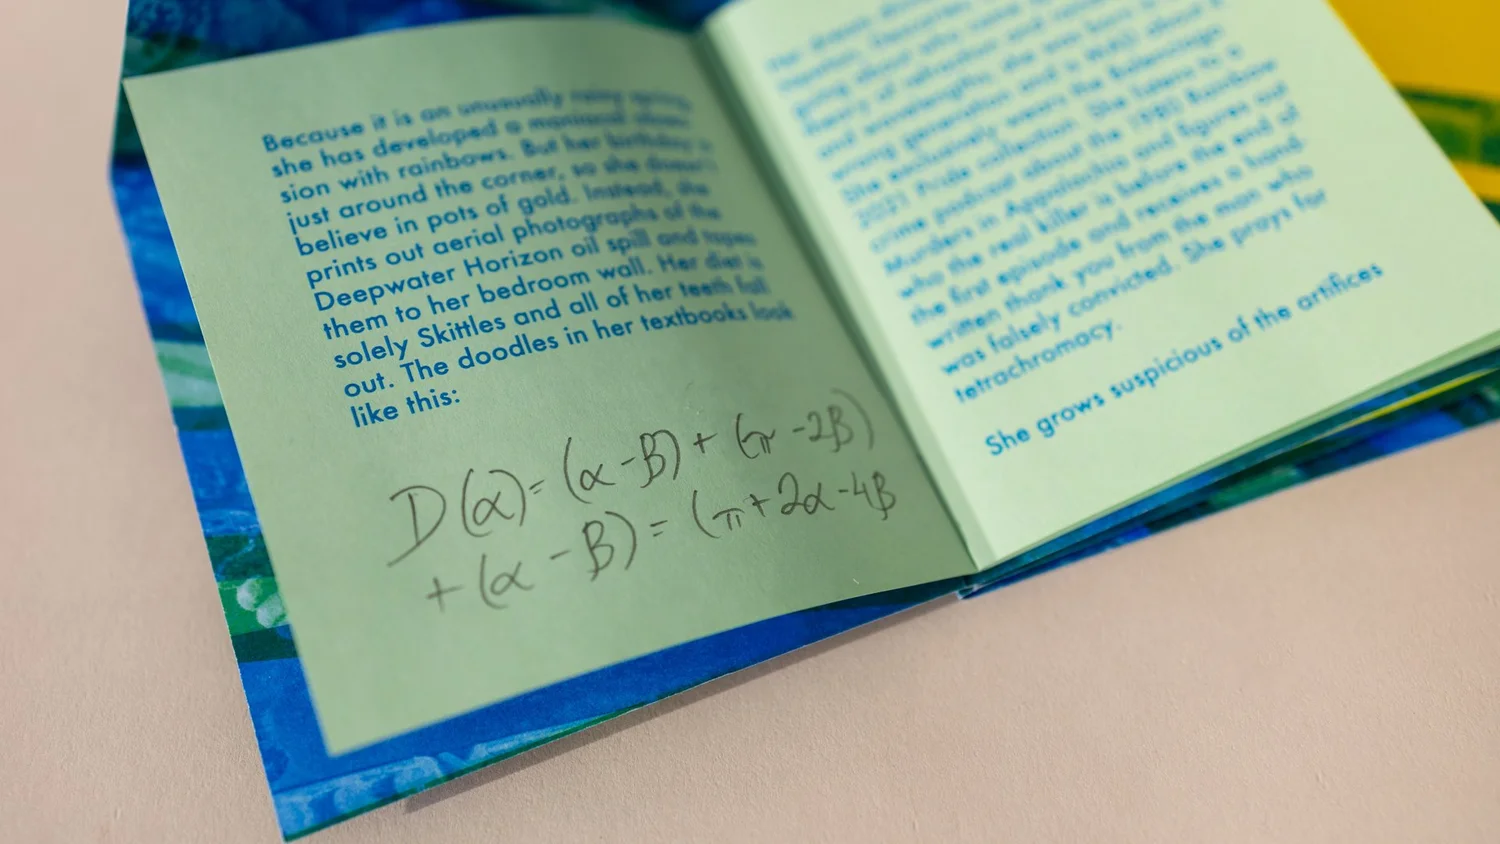 Because it is an unusually rainy spring
she has developed a maniacal obses-
sion with rainbows. But her birthday is
just around the corner, so she doesn't
believe in pots of gold. Instead, she
prints out aerial photographs of the
Deepwater Horizon oil spill and tapes
them to her bedroom wall. Her diet is
solely Skittles and all of her teeth fall
out. The doodles in her textbooks look
like this:
D(α)= (α-β)+(π-2β)
+(α-β)=(π+2α-4β
going about
theory of refraction and
and wavelengths, she was born in the
wrong generation and is WAS about it
She exclusively wears the Balenciaga
2021 Pride collection. She listens to a
crime podcast about the 1980 Rainbow
Murders in Appalachia and figures out
who the real killer is before the end of
the first episode and receives a hand-
written thank you from the man who
was falsely convicted. She prays for
tetrachromacy.
She grows suspicious of the artifices